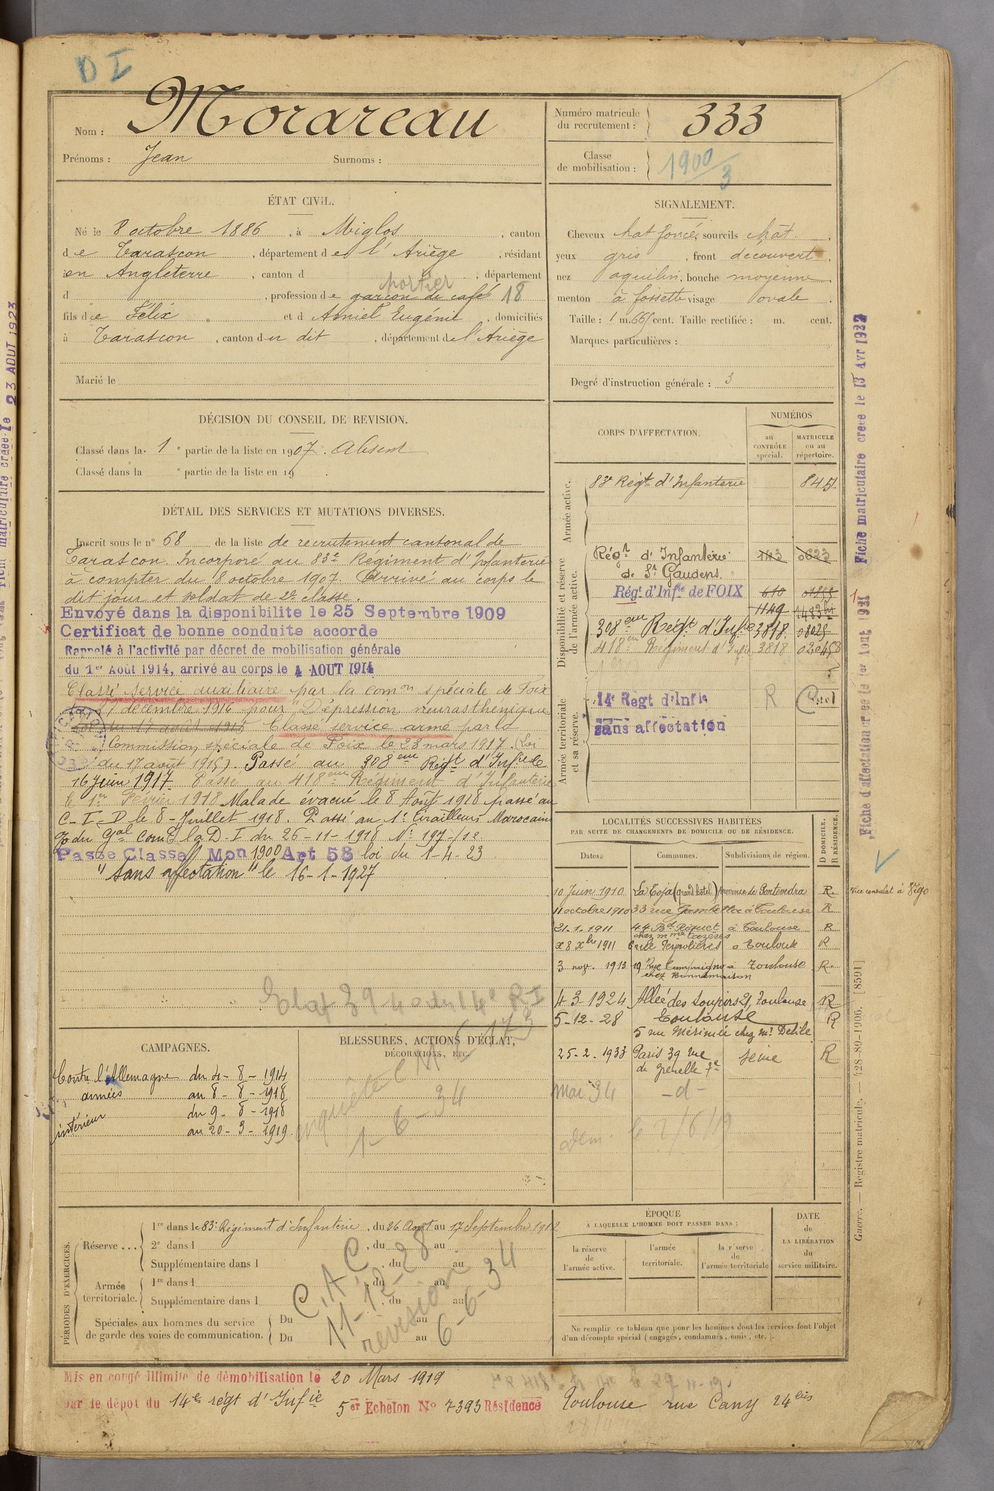 D I
Nom : Morareau
Prénoms : Jean Surnoms :
Numéro matricule du recrutement : 333
Classe de mobilisation : 1900/3
ÉTAT CIVIL.
Né le 8 octobre 1886, à Miglos, canton
de Tarascon, département de l'Ariège, résidant
en Angleterre, canton d , département
portier
d , profession de garçon de café 18
fils de Félix et d Amiel Eugénie, domiciliés
à Tarascon, canton du dit, département de l'Ariège
Marié le
SIGNALEMENT.
Cheveux chat foncés sourcils chat.
yeux gris, front découvert,
nez aquilin, bouche moyenne
menton à fossette visage ovale.
Taille : 1 m. 66 cent. Taille rectifiée : m. cent.
Marques particulières :
Degré d'instruction générale : 3
DÉCISION DU CONSEIL DE REVISION.
Classé dans la 1 e partie de la liste en 1907. Absent
Classé dans la e partie de la liste en 19
DÉTAIL DES SERVICES ET MUTATIONS DIVERSES.
Inscrit sous le n° 68 de la liste de recrutement cantonal de
Tarascon. Incorporé au 83e Régiment d'Infanterie
à compter du 8 octobre 1907. Arrivé au corps le
dit jour et soldat de 2e classe.
Envoyé dans la disponibilite le 25 Septembre 1909
Certificat de bonne conduite accorde
Rappelé à l'activité par décret de mobilisation générale
du 1er Août 1914, arrivé au corps le 4 AOUT 1914
Classé service auxiliaire par la comon spéciale de Foix
17 décembre 1914 pour "Dépression neurasthénique
Classé service armé par la
Commission spéciale de Foix le 28 mars 1917 (Loi
du 17 août 1915). Passé au 308eme Regt d'Infie le
16 juin 1917. Passé au 418eme Régiment d'Infanterie
le 1er Février 1918 Malade évacué le 8 Août 1918 passé au
C-I-D le 8-Juillet 1918. Passé au 1er Tirailleurs Marocain
o/ du Gal Comt la D.I du 26-11-1918 N° 197-/12
Passé Classe Mon 1900 Art 58 loi du 1-4-23
"Sans affectation" le 16-1-1927
CORPS D'AFFECTATION.
NUMÉROS
au CONTRÔLE spécial.
MATRICULE ou au répertoire.
Armée active.
83e Régt d'Infanterie 8451
Disponibilité et réserve de l'armée active.
Régt d'Infanterie de St Gaudens 143 0623
Régt d'Infie de FOIX 610
1149
308eme Regt d'Infie 3818
418eme Regiment d'Infie 3818
Armée territoriale et sa réserve.
14e Regt d'Infie R
sans affectation
LOCALITÉS SUCCESSIVES HABITÉES
PAR SUITE DE CHANGEMENTS DE DOMICILE OU DE RÉSIDENCE.
Dates: Communes. Subdivisions de région. D DOMICILE. R RÉSIDENCE.
10 Juin 1910 La Toja (grand hôtel) province de Pontendra R. Vice consulat à Vigo
11 octobre 1910 33 rue Gambetta à Toulouse R
21.1.1911 44 Bd Riquet à Toulouse R
28 Xbre 1911 8 rue Peyrolières à Toulouse R
3 nov. 1913 19 Rue à Toulouse R.
chez Bonnemaison
4-3-1924 Allée des Soupirs 21, Toulouse R
5-12-28 Toulouse R
5 rue Mérimée chez Mr Delile
25-2-1933 Paris 39 rue de Grenelle 7e Seine R
Mai 34 -d-
Etat 394 du 14e RI
CAMPAGNES.
Contre l'Allemagne du 4-8-1914
armées au 8-8-1918
intérieur du 9-8-1918
au 20-3-1919
BLESSURES, ACTIONS D'ÉCLAT,
DÉCORATIONS, ETC.
enquête
1-6-34
PÉRIODES D'EXERCICES.
Réserve ...
1re dans le 83e Régiment d'Infanterie, du 26 Août au 17 Septembre 1912
2e dans l , du au
Supplémentaire dans l , du au
Armée territoriale.
1re dans l , du au
Supplémentaire dans l , du au
Spéciales aux hommes du service
de garde des voies de communication.
Du au
Du au
C.A.C.
11-12-28
révision
6-6-34
ÉPOQUE
À LAQUELLE L'HOMME DOIT PASSER DANS :
la réserve de l'armée active.
l'armée territoriale.
la réserve de l'armée territoriale
DATE de LA LIBÉRATION du service militaire.
Ne remplir ce tableau que pour les hommes dont les services font l'objet
d'un décompte spécial (engagés, condamnés, omis, etc.).
Mis en congé illimité de démobilisation le 20 Mars 1919
par le dépôt du 14e régt d'Infie 5er Echelon N° 7393 Résidence Toulouse rue Cany 24 bis
Fiche matriculaire créée le 13 Avr 1922
Fiche d'affectation créée le 1er Aout 1921
Guerre. — Registre matricule. — 428-89-1906. [8591]
23 AOUT 1923